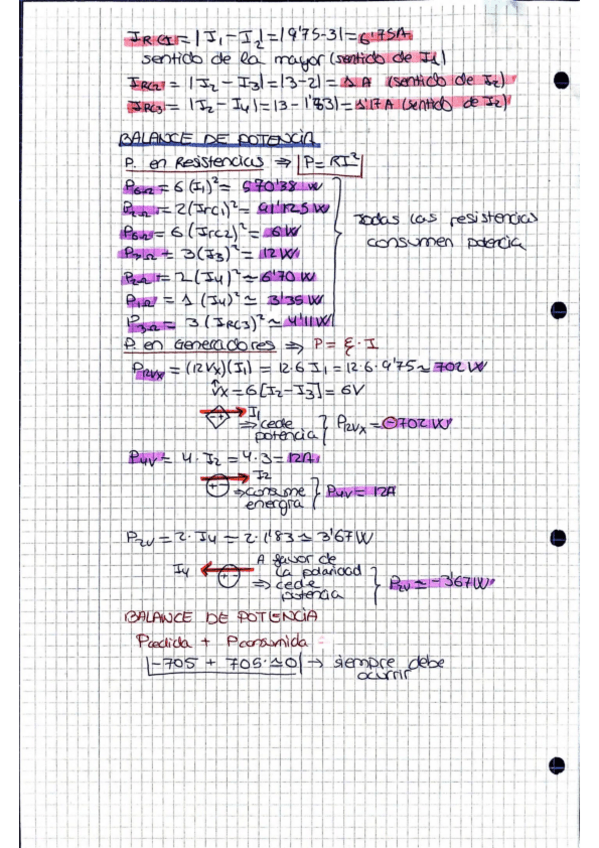 IRC1 = |I1 - I2| = |9'75-3| = 6'75A
sentido de la mayor (sentido de I1)
IRC2 = |I2 - I3| = |3-2| = 1 A (sentido de I2)
IRC3 = |I2 - I4| = |3 - 1'83| = 1'17 A (sentido de I2)
BALANCE DE POTENCIA
P. en Resistencias ⇒ P=RI²
P6Ω = 6(I1)² = 570'38 W
P2Ω = 2(Irc1)² = 91'125 W
P6Ω = 6(Irc2)² = 6W
P3Ω = 3(I3)² = 12W
P2Ω = 2(I4)² ≈ 6'70 W
P1Ω = 1(I4)² ≈ 3'35 W
P3Ω = 3(IRC3)² ≈ 4'11W
Todas las resistencias
consumen potencia
P. en Generadores ⇒ P = ξ·I
P12Vx = (12Vx)(I1) = 12·6 I1 = 12·6·9'75 ≈ 702 W
Vx = 6[I2-I3] = 6V
I1
- +
⇒ cede
potencia
P2Vx = -702 W
P4V = 4·I2 = 4·3 = 12A
I2
+ -
⇒ consume
energía
P4V = 12A
P2V = 2·I4 = 2·1'83 ≈ 3'67W
I4
+ -
A favor de
la polaridad
⇒ cede
potencia
P2V ≈ -3'67W
BALANCE DE POTENCIA
Pcedida + Pconsumida =
|-705 + 705 ≈ 0| → siempre debe
ocurrir